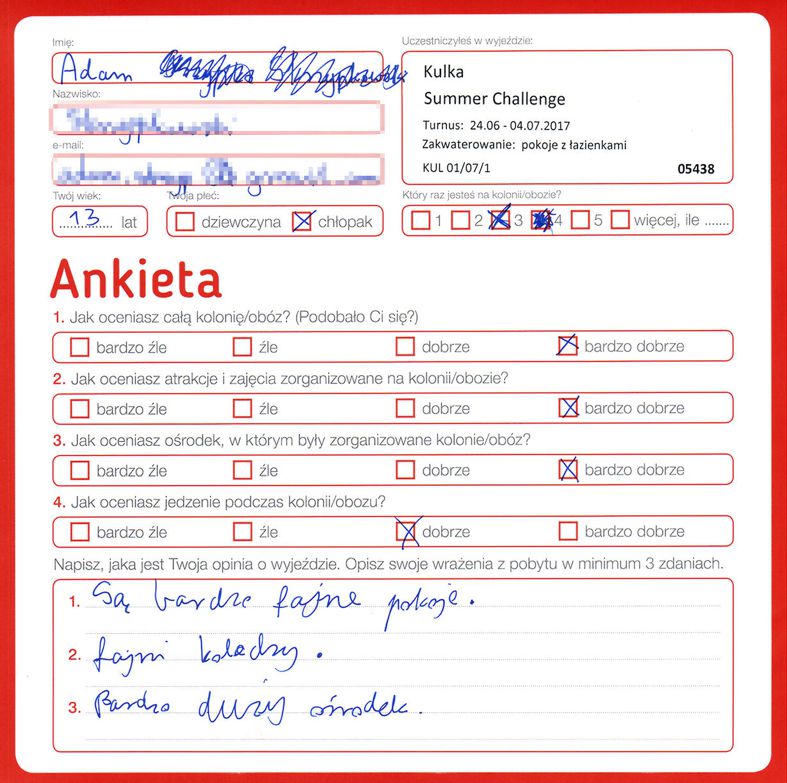 Imię:
Adam
Uczestniczyłeś w wyjeździe:
Kulka
Summer Challenge
Turnus: 24.06 - 04.07.2017
Zakwaterowanie: pokoje z łazienkami
KUL 01/07/1 05438
Nazwisko:
e-mail:
Twój wiek:
13 lat
Twoja płeć:
dziewczyna chłopak
Który raz jesteś na kolonii/obozie?
1 2 3 4 5 więcej, ile .......
Ankieta
1. Jak oceniasz całą kolonię/obóz? (Podobało Ci się?)
bardzo źle źle dobrze bardzo dobrze
2. Jak oceniasz atrakcje i zajęcia zorganizowane na kolonii/obozie?
bardzo źle źle dobrze bardzo dobrze
3. Jak oceniasz ośrodek, w którym były zorganizowane kolonie/obóz?
bardzo źle źle dobrze bardzo dobrze
4. Jak oceniasz jedzenie podczas kolonii/obozu?
bardzo źle źle dobrze bardzo dobrze
Napisz, jaka jest Twoja opinia o wyjeździe. Opisz swoje wrażenia z pobytu w minimum 3 zdaniach.
1. Są bardzo fajne pokoje.
2. fajni koledzy.
3. Bardzo duży ośrodek.